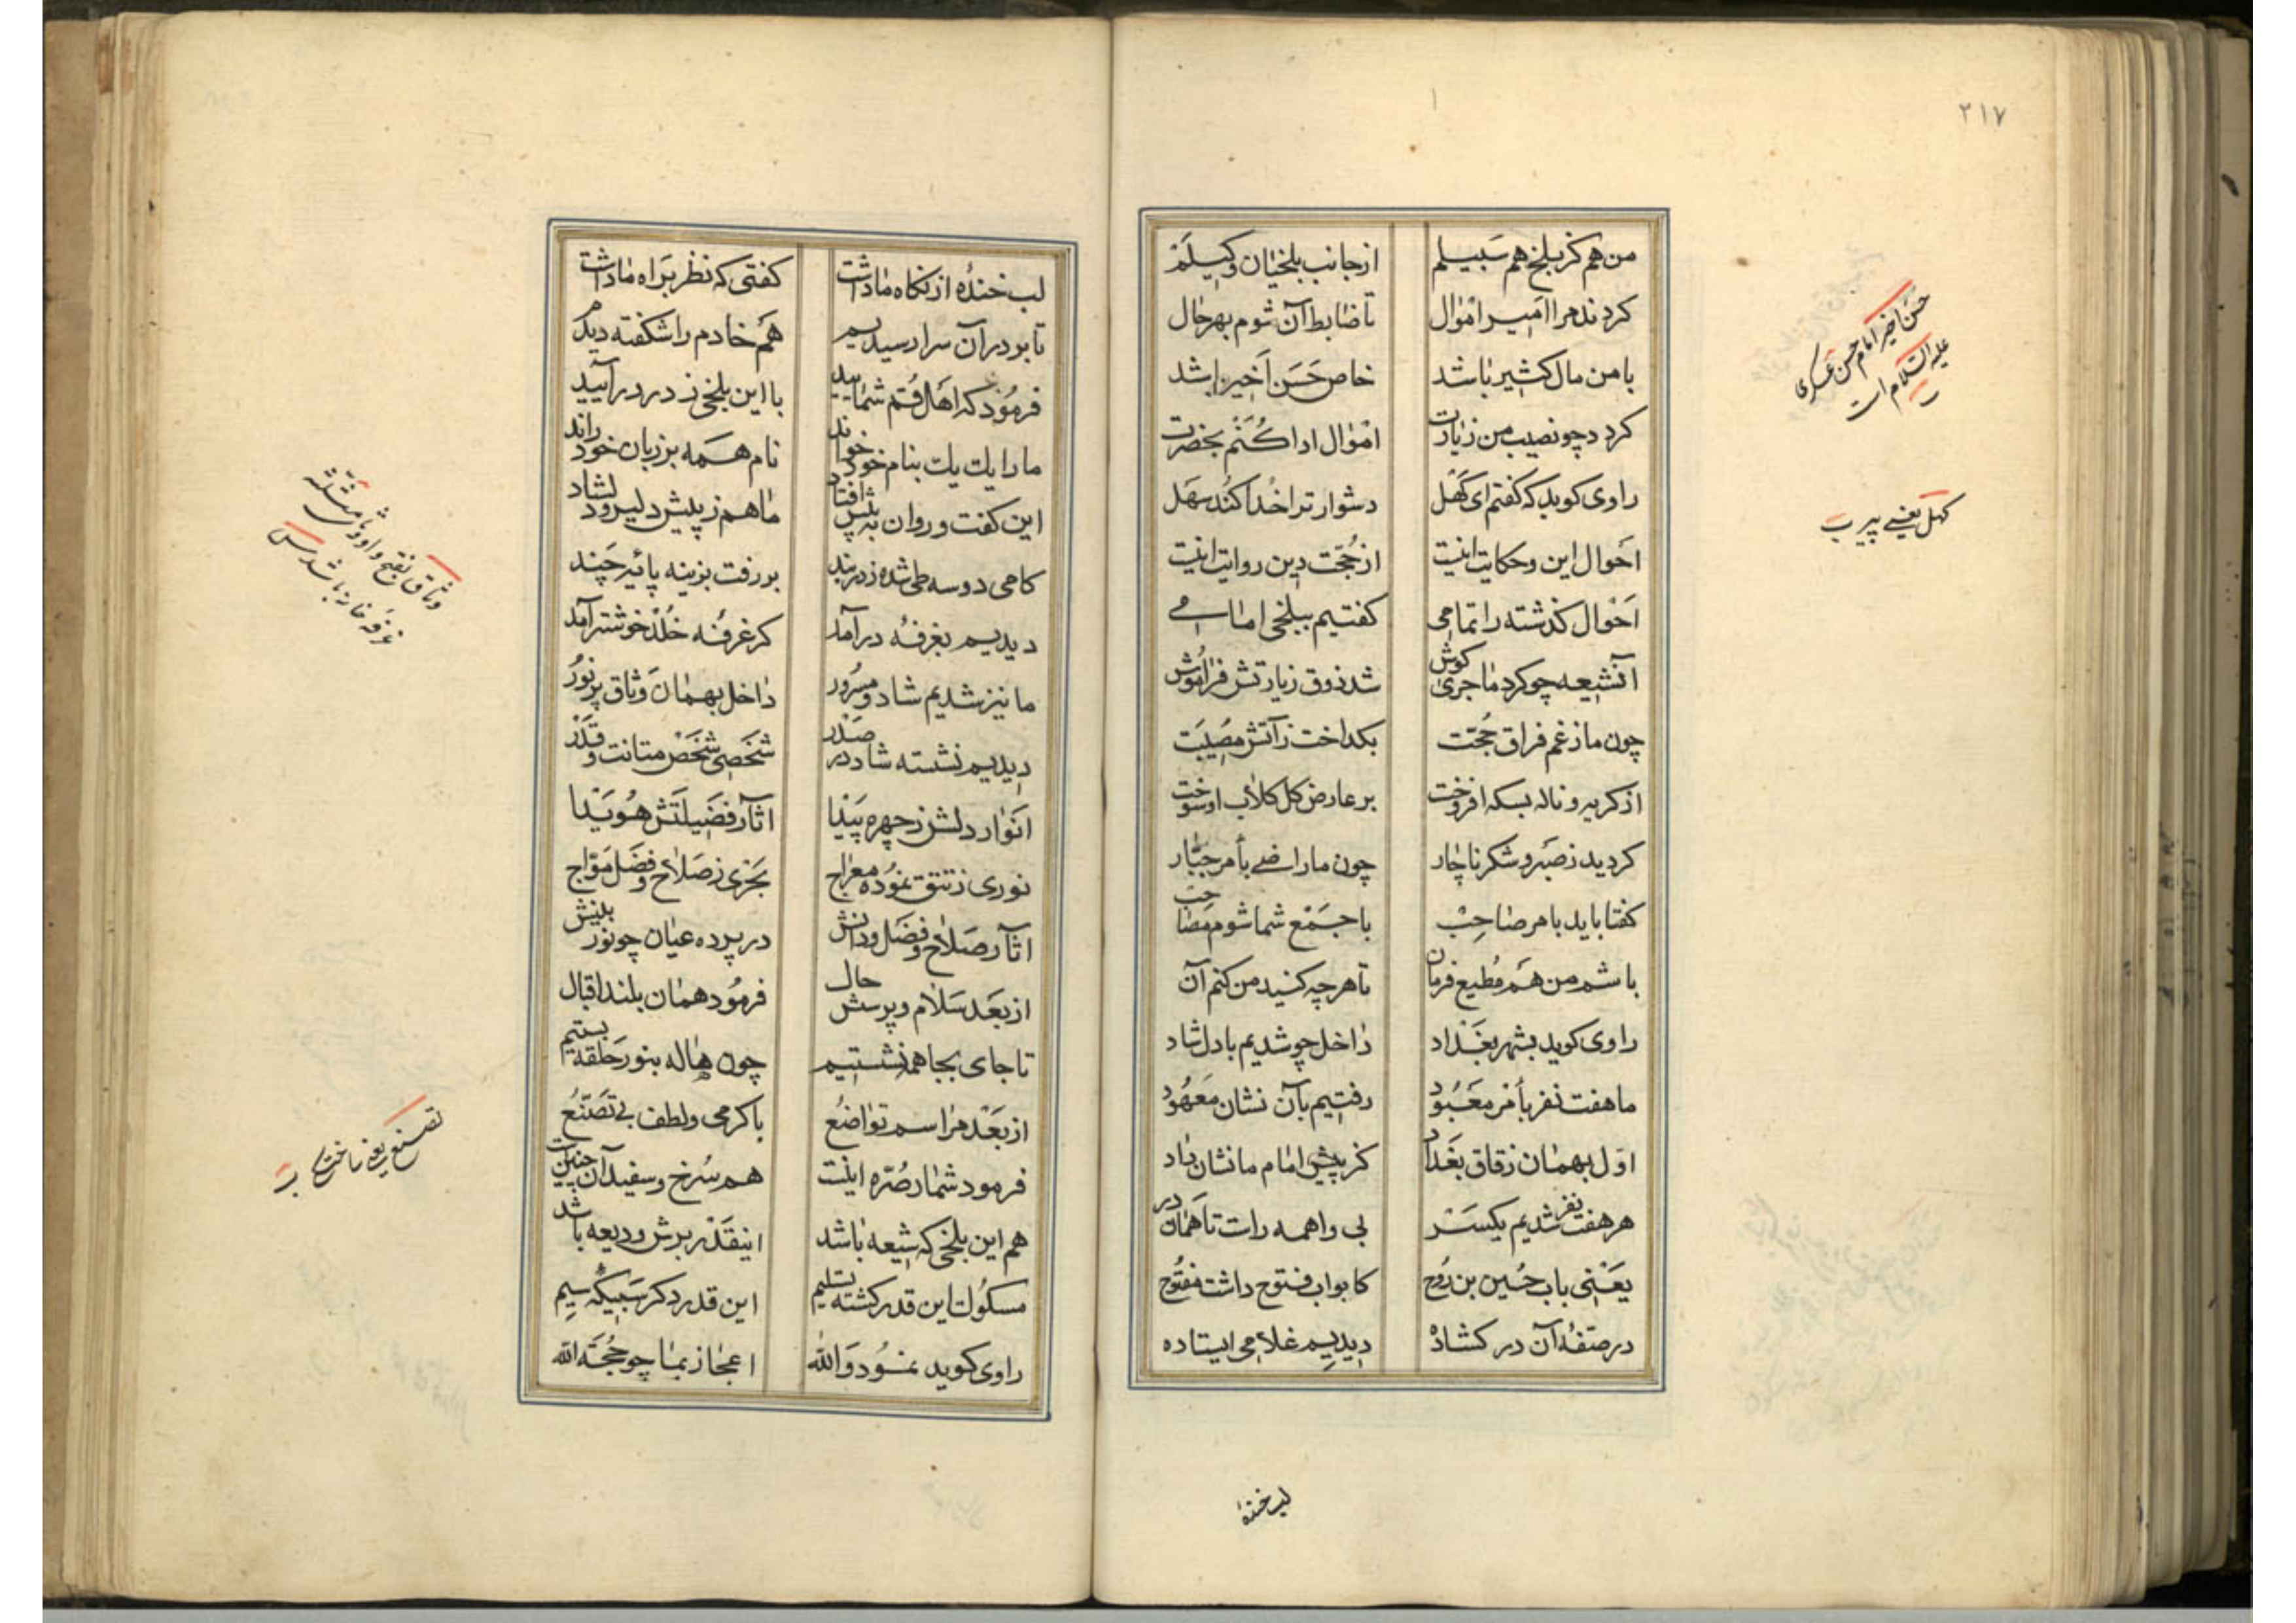 ۲۱۷
من هم کز بلخ هم سبیلم از جانب بلخیان وکیلم
کردند مرا امیر اموال تا ضابط آن شوم بهر حال
با من مال کثیر باشد خاص حسن اخیر باشد
کردد چو نصیب من زیارت اموال ادا کنم بحضرت
راوی کوید که کفتم ای کهل دشوار ترا خدا کند سهل
احوال این و حکایت اینست از حجت دین روایت اینست
احوال کذشته را تمامی کفتیم ببلخی امامی
آنشیعه چو کرد ماجری کوش شد ذوق زیارتش فراموش
چون ما ز غم فراق حجت بکداخت ز آتش مصیبت
از کریه و ناله بسکه افروخت بر عارض کل کلاب او سوخت
کردید ز صبر و شکر ناچار چون ما راضی بأمر جبار
کفتا باید بامر صاحب با جمع شما شوم مصاحب
باشم من هم مطیع فرمان تا هرچه کنید من کنم آن
راوی کوید بشهر بغداد داخل چو شدیم با دل شاد
ما هفت نفر بأمر معبود رفتیم بآن نشان معهود
اول بهمان زقاق بغداد کز پیش امام ما نشان داد
هر هفت نفر شدیم یکسر بی واهمه راست تا همان در
یعنی باب حسین بن روح کابواب فتوح داشت مفتوح
در صفهٔ آن در کشاده دیدیم غلامی ایستاده
حسن اخیر امام حسن عسکری
علیه السلام است
کهل یعنی پیر
لب خندهٔ
لب خندهٔ از نکاه ما داشت کفتی که نظر براه ما داشت
تا بر در آن سرا رسیدیم هم خادم را شکفته دیدیم
فرمود که اهل قم شمایید با این بلخی ز در درآیید
ما را یک یک بنام خود خواند نام همه بر زبان خود راند
این کفت و روان به پیش افتاد ما هم ز پیش دلیر و دلشاد
کامی دو سه طی شده ز در بند بر رفت بزینه پائیر چند
دیدیم بغرفه درآمد کز غرفهٔ خلد خوشتر آمد
ما نیز شدیم شاد و مسرور داخل بهمان وثاق پر نور
دیدیم نشسته شاد در صدر شخصی شخص متانت و قدر
انوار دلش ز چهره پیدا اثار فضیلتش هویدا
نوری ز تتق نموده معراج بحری ز صلاح و فضل مواج
اثار صلاح و فضل و دانش در پرده عیان چو نور بینش
از بعد سلام و پرسش حال فرمود همان بلند اقبال
تا جای بجا همه نشستیم چون هاله بنور حلقه بستیم
از بعد مراسم تواضع با کرمی و لطف بی تصنع
فرمود شمار صره اینست هم سرخ و سفید آن چنین است
هم این بلخی که شیعه باشد اینقدر برش ودیعه باشد
مسکوک این قدر کشته تسلیم این قدر دکر سبیکهٔ سیم
راوی کوید نمود والله اعجاز بما چو حجة الله
وثاق بفتح واو و ثاء مثلثه
غرفه خانه باشد
تصنع یعنی ساختن